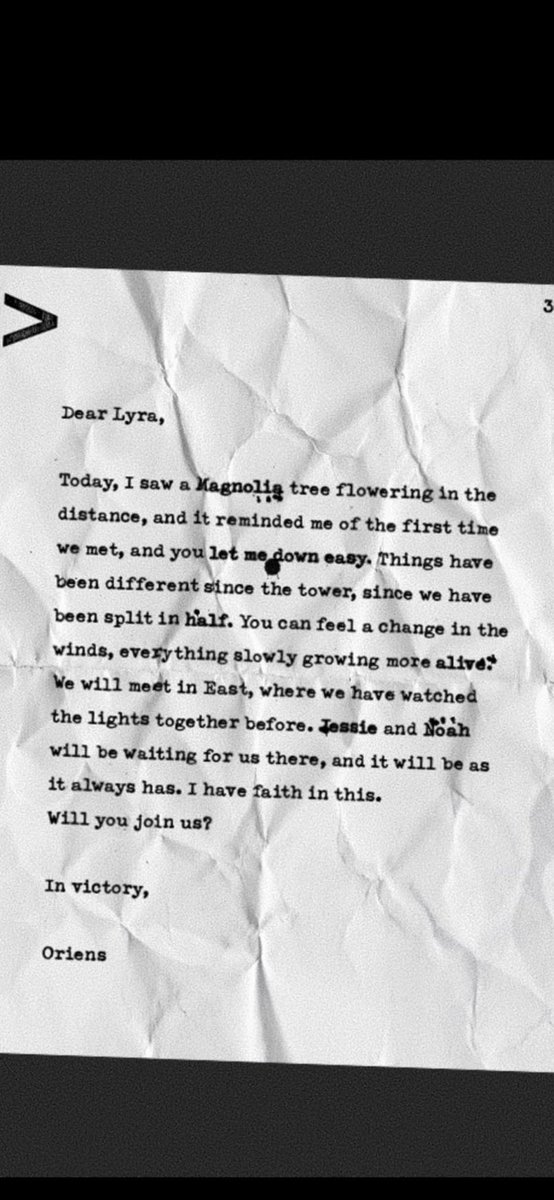 3
Dear Lyra,
Today, I saw a Magnolia tree flowering in the
distance, and it reminded me of the first time
we met, and you let me down easy. Things have
been different since the tower, since we have
been split in half. You can feel a change in the
winds, everything slowly growing more alive.
We will meet in East, where we have watched
the lights together before. Jessie and Noah
will be waiting for us there, and it will be as
it always has. I have faith in this.
Will you join us?
In victory,
Oriens